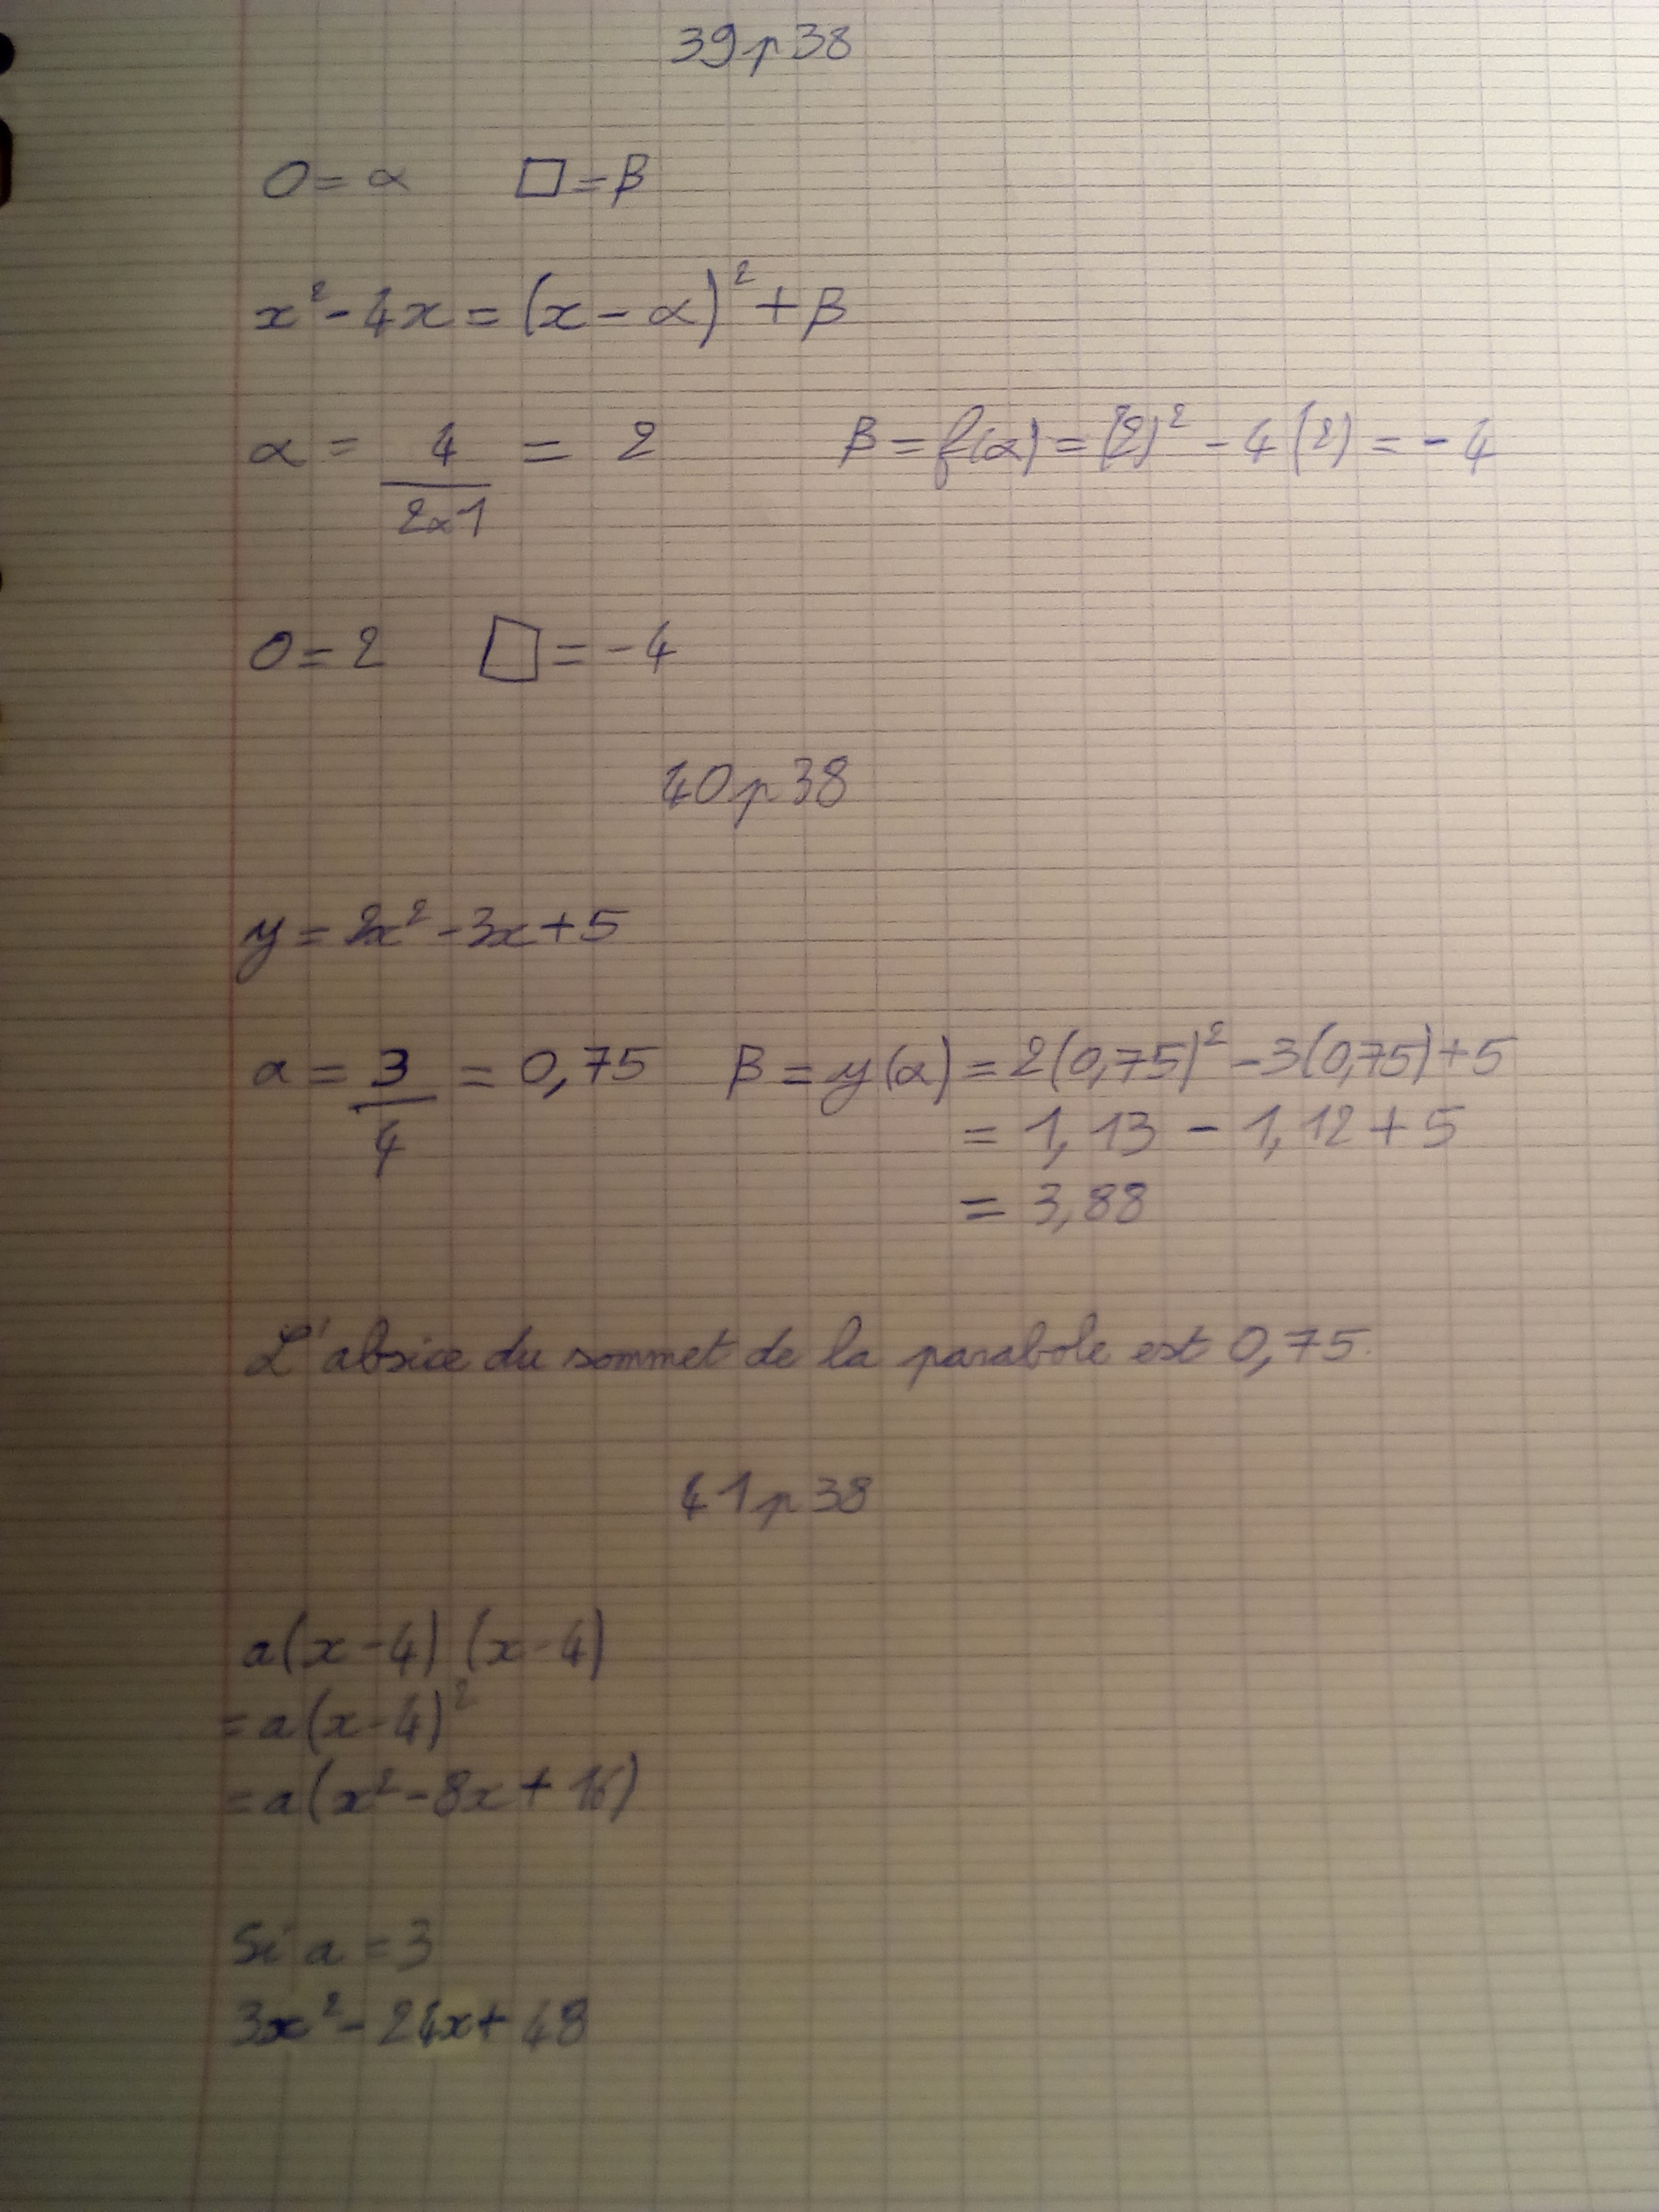 39 p 38
O = α □ = β
x² - 4x = (x - α)² + β
α = 4/2×1 = 2 β = f(α) = (2)² - 4(2) = -4
O = 2 □ = -4
40 p 38
y = 2x² - 3x + 5
α = 3/4 = 0,75 β = y(α) = 2(0,75)² - 3(0,75) + 5
= 1,13 - 1,12 + 5
= 3,88
L'absice du sommet de la parabole est 0,75.
41 p 38
a(x - 4) (x - 4)
= a(x - 4)²
= a(x² - 8x + 16)
Si a = 3
3x² - 24x + 48